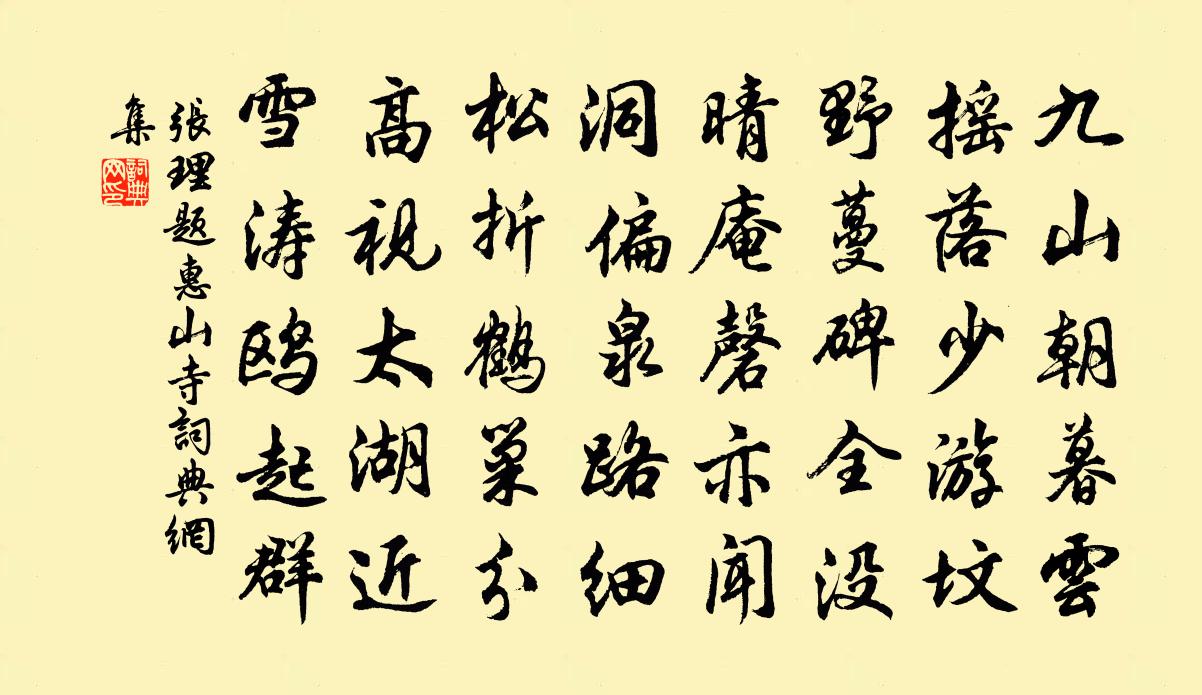 九山朝暮雲
搖落少游坟
野蔓碑全没
晴庵磬亦聞
洞偏泉路细
松折鶴巢分
高視太湖近
雪涛鸥起群
張理题惠山寺詞典網
集
詞典網印